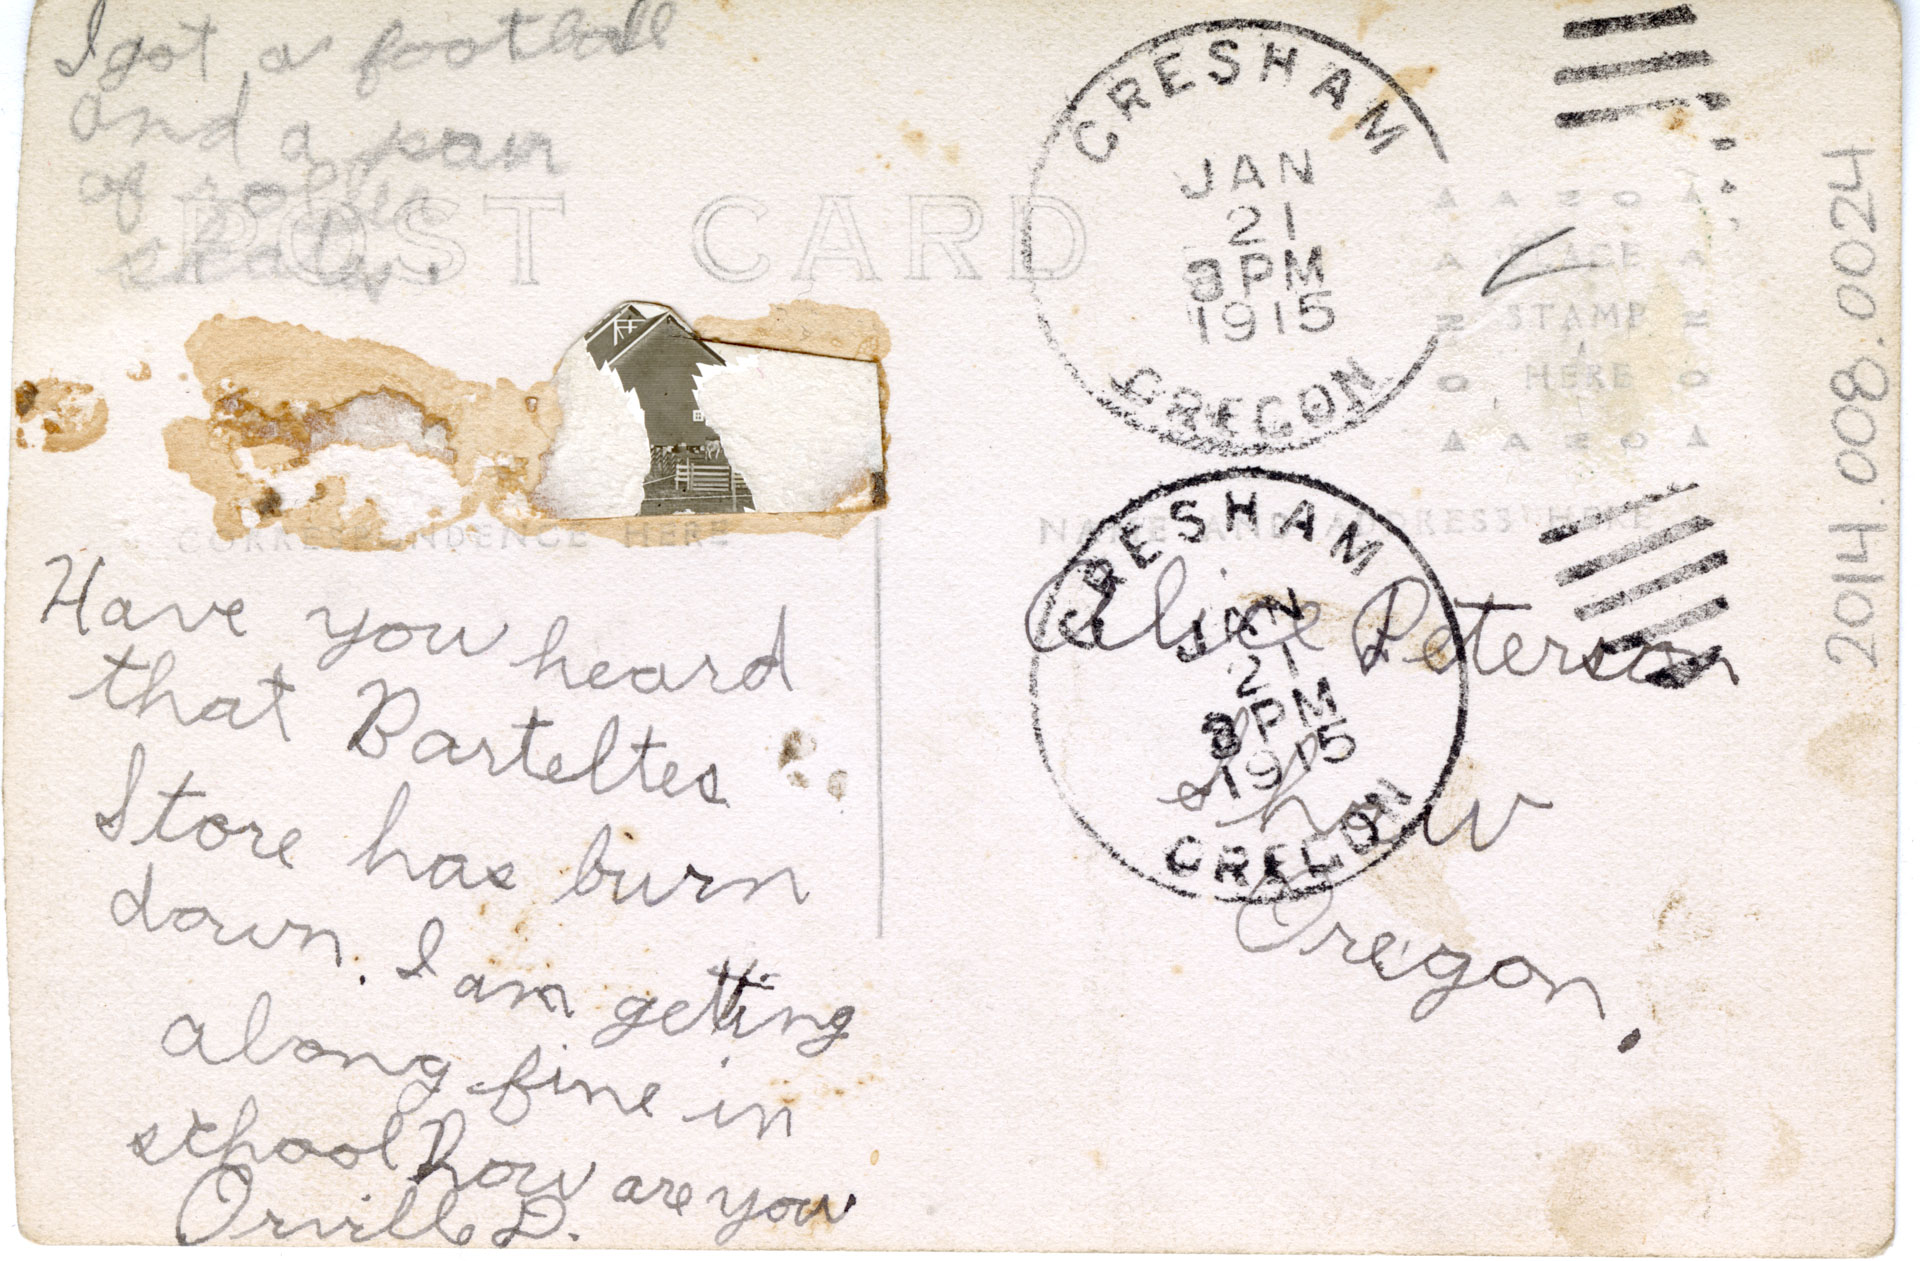 I got a football
and a pair
of roller
skates.
POST CARD
CORRESPONDENCE HERE
Have you heard
that Barteltes
Store has burn
down. I am getting
along fine in
school how are you
Orville D.
GRESHAM
JAN
21
8 PM
1915
OREGON
AZO
PLACE
STAMP
HERE
AZO
NAME AND ADDRESS HERE
GRESHAM
JAN
21
8 PM
1915
OREGON
Alice Peterson
Shaw
Oregon.
2014.008.0024